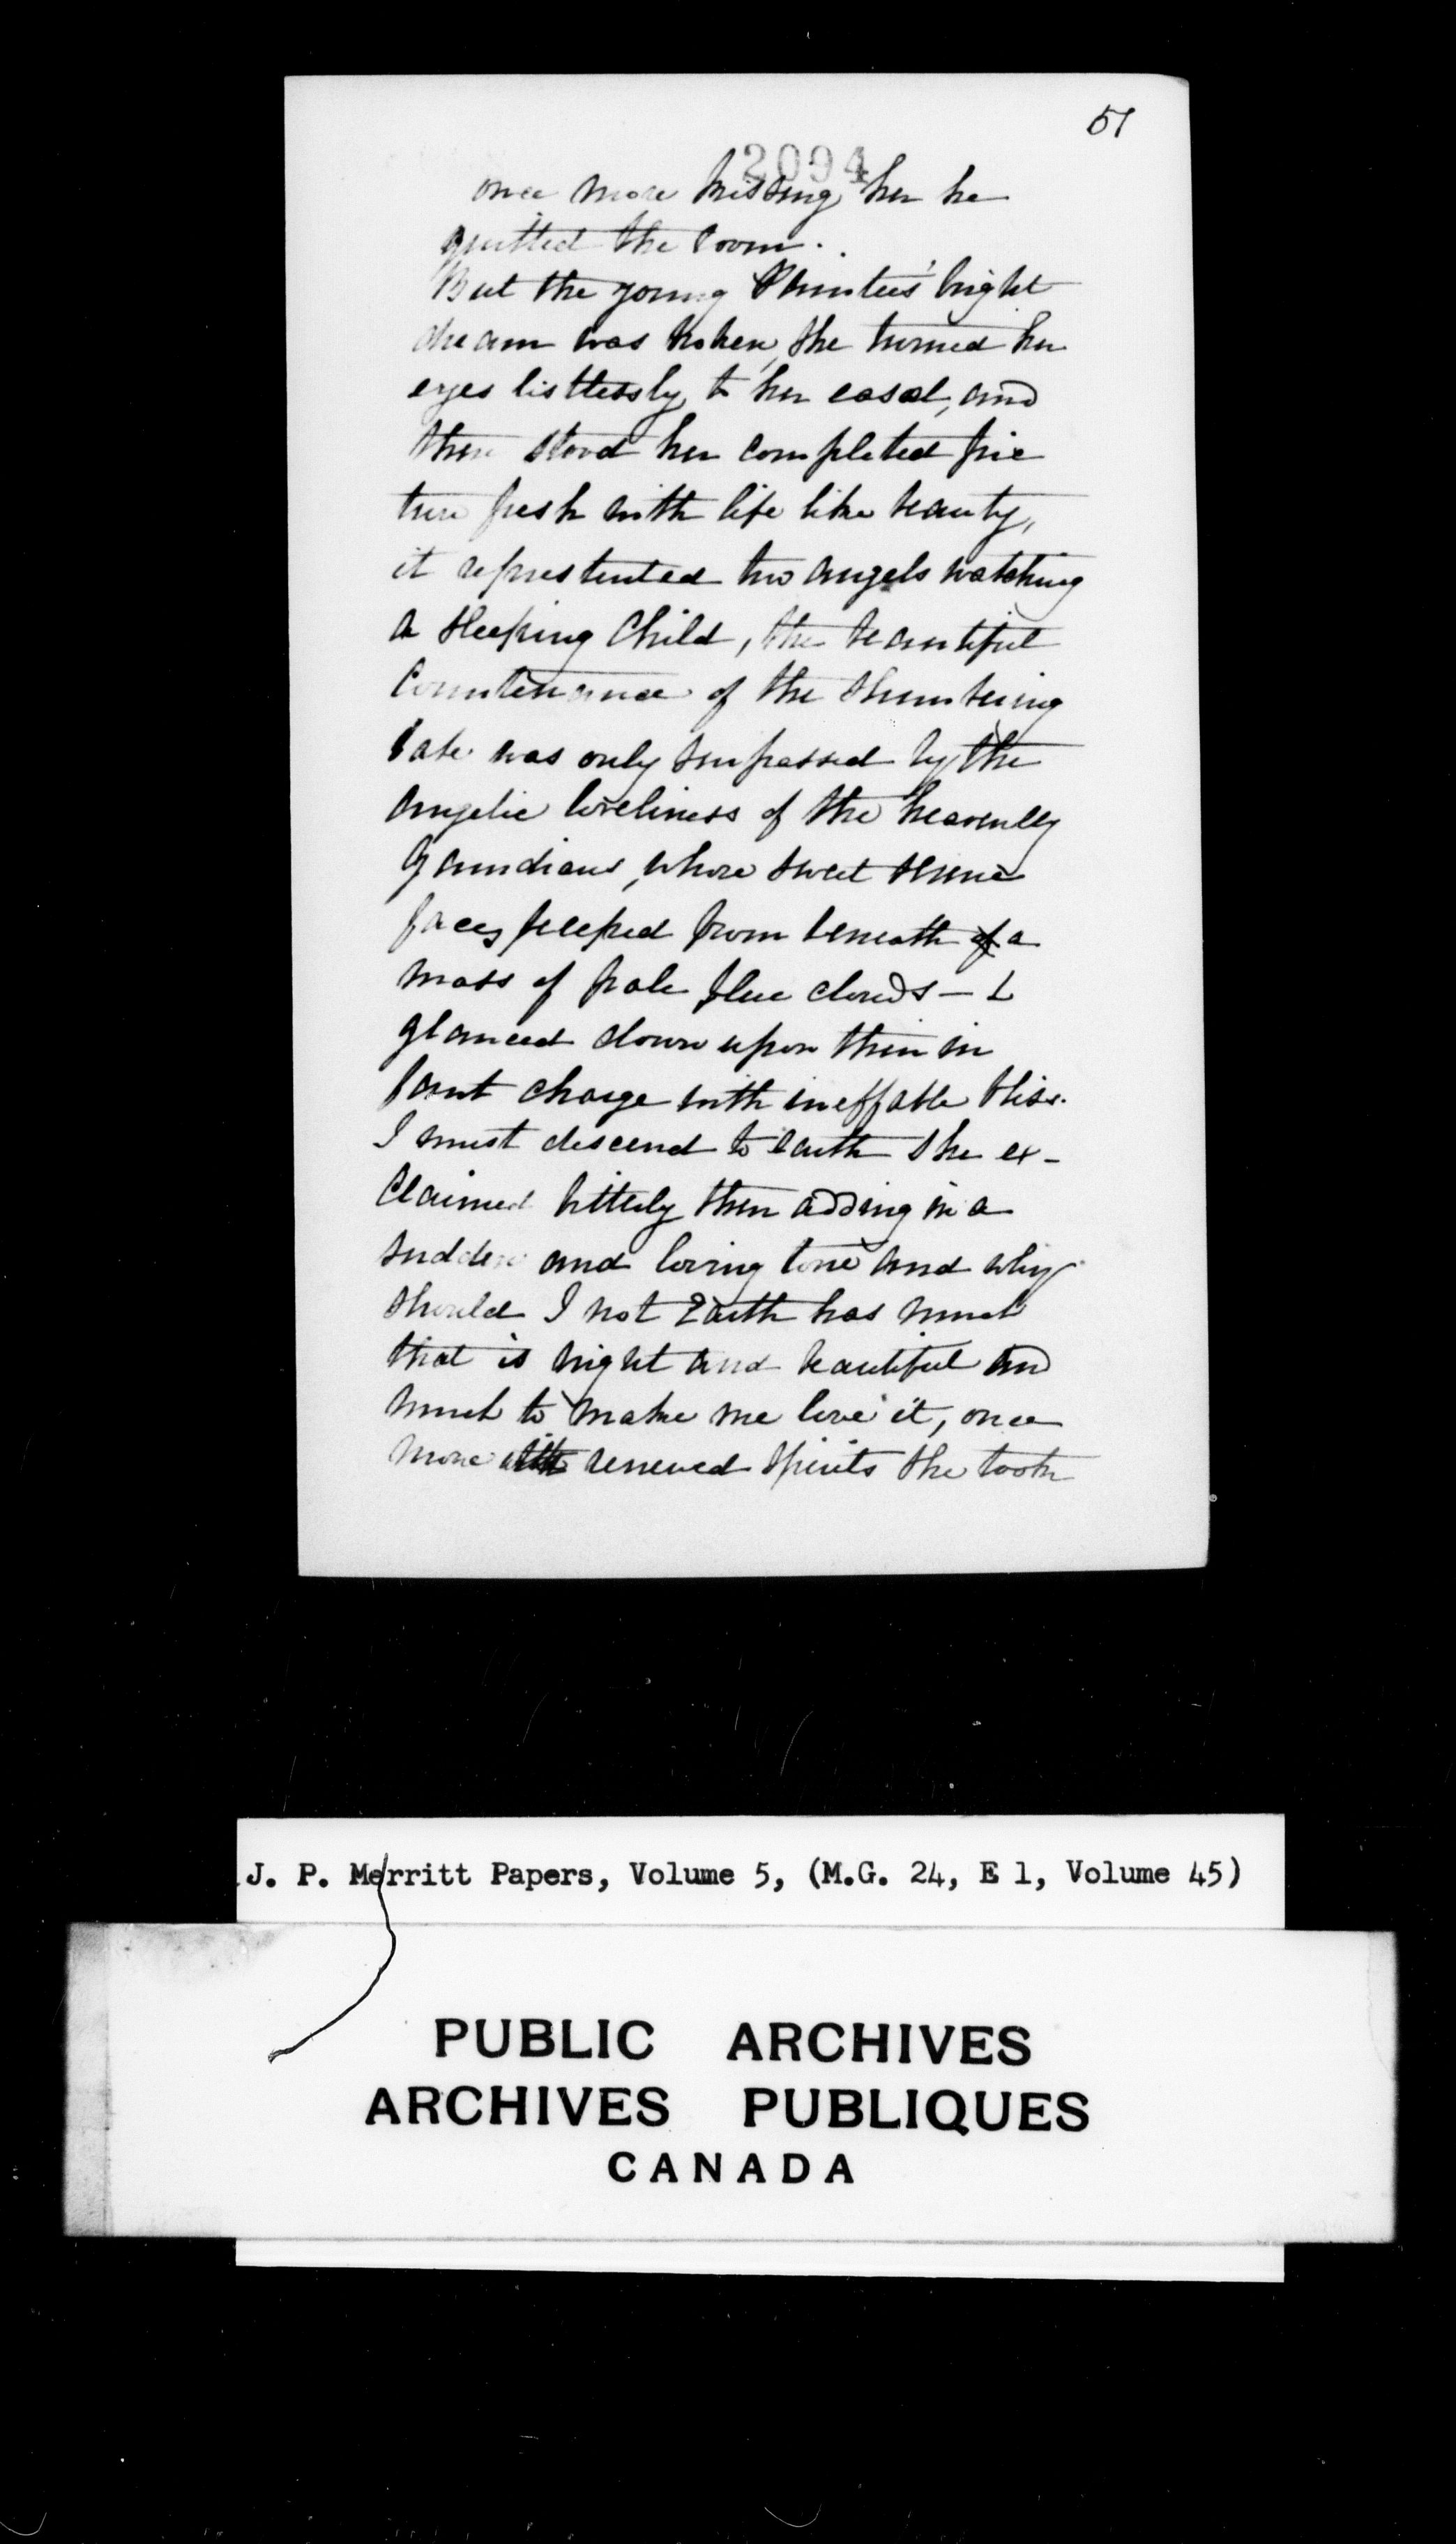 51
2094
once more kissing her he
quitted the room.
But the young Painter's bright
dream was broken, she turned her
eyes listlessly to her easel, and
there stood her completed pic
ture fresh with life like beauty,
it represented two angels watching
a sleeping Child, the beautiful
Countenance of the slumbering
babe was only surpassed by the
angelic loveliness of the heavenly
guardians, whose sweet serene
faces peeped from beneath of a
mass of pale blue clouds — &
glanced down upon their in
fant charge with ineffable bliss.
I must descend to earth she ex-
claimed bitterly then adding in a
sudden and loving tone and why
should I not Earth has much
that is bright and beautiful and
much to make me love it, once
more with renewed spirits she took
J. P. Merritt Papers, Volume 5, (M.G. 24, E 1, Volume 45)
PUBLIC ARCHIVES
ARCHIVES PUBLIQUES
CANADA